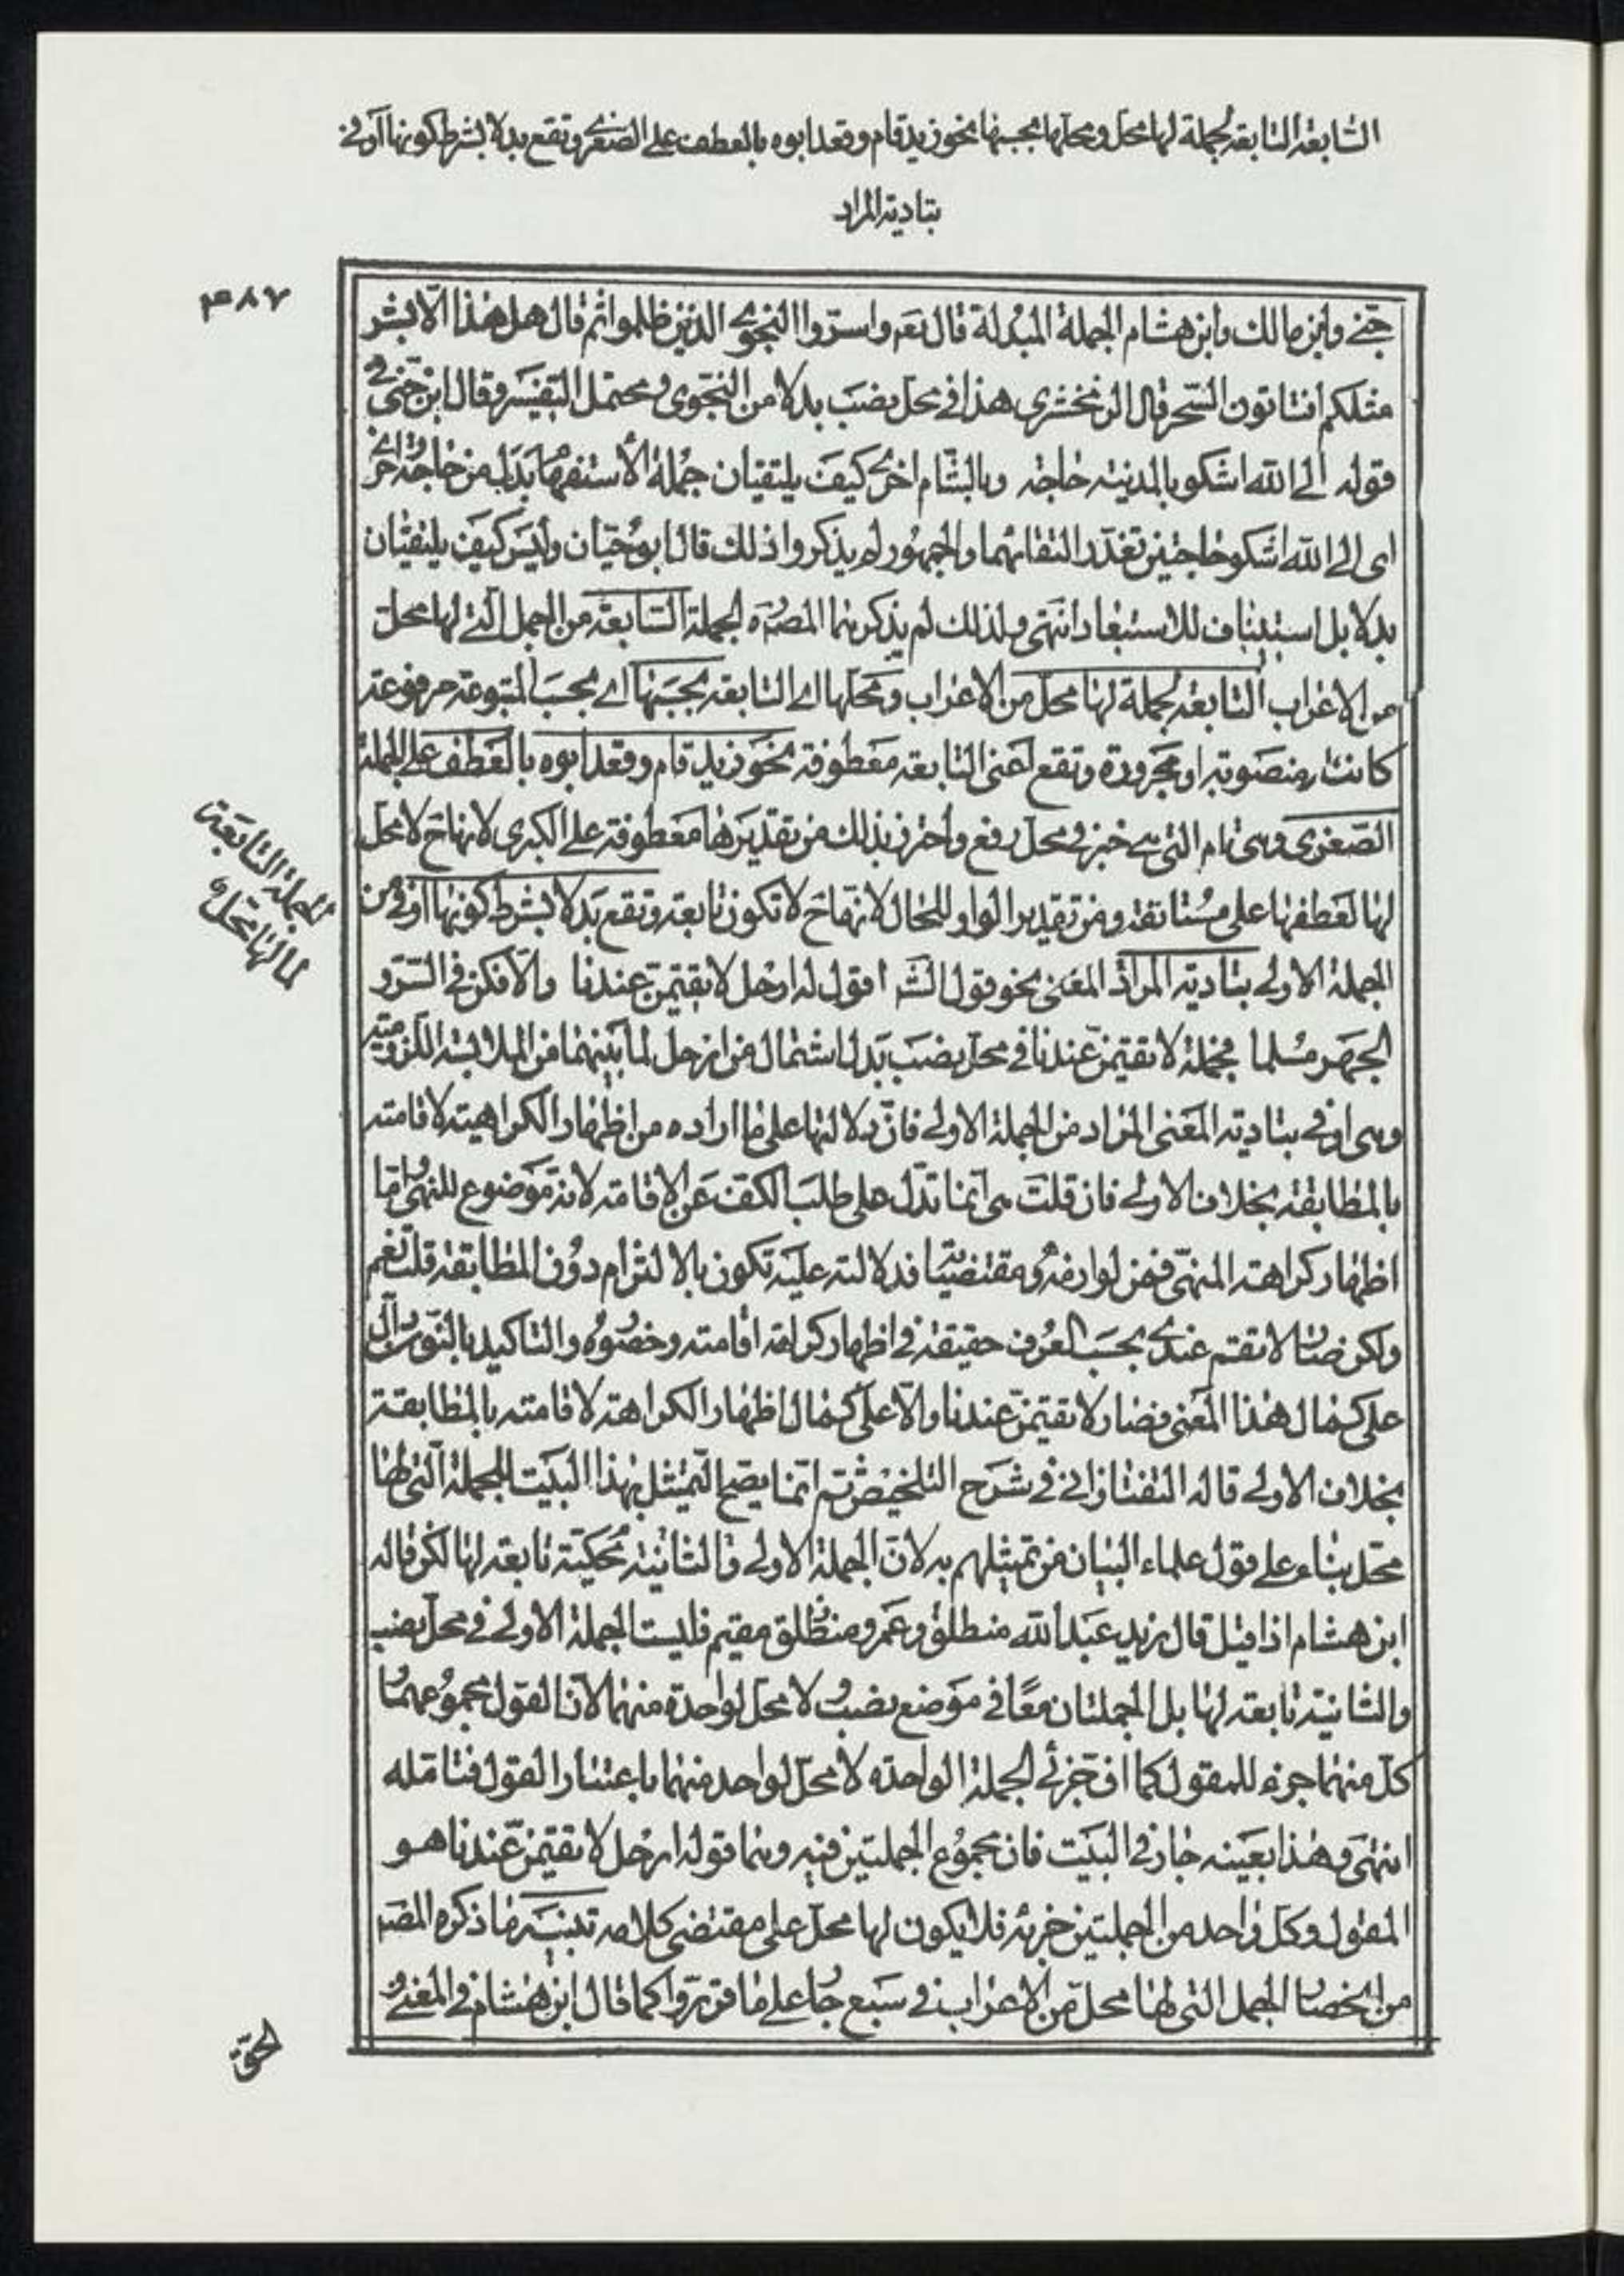 السابعة التابعة لجملة لها محل ومحلها بحسبها نحو زيد قام وقعد ابوه بالعطف على الصغرى وتقع بدلا بشرط كونها اوفى
بتادية المراد
٤٨٧
جنى وابن مالك وابن هشام الجملة المبدلة قال تعم واسرّوا النجوى الذين ظلموا ثم قال هل هذا الّا بشر
مثلكم افتاتون السّحر قال الزمخشرى هذا فى محل نصب بدلا من النجوى ومحتمل التفسير وقال ابن جنى فى
قوله الى الله اشكو بالمدينة حاجة وبالشّام اخرى كيف يلتقيان جملة الاستفهام بدل من حاجة واخرى
اى الى الله اشكو حاجتين تعذّر التقائهما والجمهور لم يذكروا ذلك قال ابو حيّان وليس كيف يلتقيان
بدلا بل استيناف للاستبعاد انتهى ولذلك لم يذكرهما المصنّف الجملة السّابعة من الجمل الّتى لها محلّ
من الاعراب التابعة لجملة لها محل من الاعراب ومحلّها اى التابعة بحسبها اى بحسب المتبوعة مرفوعة
كانت او منصوبة او مجرورة وتقع اعنى التابعة معطوفة نحو زيد قام وقعد ابوه بالعطف على الجملة
الصّغرى وهى قام التى هى خبر فى محل رفع واحترز بذلك من تقديرها معطوفة على الكبرى لانهاح لا محل
لها لعطفها على مستانفة ومن تقدير الواو للحال لانهاح لا تكون تابعة وتقع بدلا بشرط كونها اوفى من
الجملة التابعة
لما لها محل
الجملة الاولى بتادية المراد المعنى نحو قول الشه اقول له ارحل لا تقيمنّ عندنا والّا فكن فى السّرّ و
الجهر مسلما فجملة لا تقيمنّ عندنا فى محل نصب بدل اشتمال من ارحل لما بينهما من الملابسة اللزومية
وهى اوفى بتادية المعنى المراد من الجملة الاولى فانّ دلالتها على ما اراده من اظهار الكراهية لاقامته
بالمطابقة بخلاف الاولى فان قلت هى انّما تدلّ على طلب الكفّ عن الاقامة لانه موضوع للنهى وامّا
اظهار كراهة المنهىّ فمن لوازمه ومقتضياته فدلالته عليه تكون بالالتزام دون المطابقة قلت نعم
ولكن صار لا تقم عندى بحسب العرف حقيقة فى اظهار كراهة اقامته وحضوره والتاكيد بالنّون دالّ
على كمال هذا المعنى فصار لا تقيمنّ عندنا دالّا على كمال اظهار الكراهة لاقامته بالمطابقة
بخلاف الاولى قاله التفتازانى فى شرح التلخيص ثم انّما يصحّ التمثيل بهذا البيت للجملة التى لها
محلّ بناء على قول علماء البيان من تمثيلهم به لانّ الجملة الاولى والثانية محكيّة تابعة لها لكن قاله
ابن هشام اذا قيل قال زيد عبد الله منطلق وعمرو منطلق مقيم فليست الجملة الاولى فى محل نصب
والثانية تابعة لها بل الجملتان معًا فى موضع نصب ولا محل لواحدة منهما لانّ القول مجموعهما و
كلّ منهما جزء للمقول كما انّ جزئى الجملة الواحدة لا محلّ لواحد منهما باعتبار القول فتامّله
انتهى وهذا بعينه جار فى البيت فان مجموع الجملتين فيه وهما قوله ارحل لا تقيمنّ عندنا هو
المقول وكل واحد من الجملتين جزئه فلا يكون لها محلّ على مقتضى كلامه تنبيه ما ذكره المصه
من انحصار الجمل التى لها محلّ من الاعراب فى سبع جار على ما قرّروا كما قال ابن هشام فى المغنى و
الحقّ